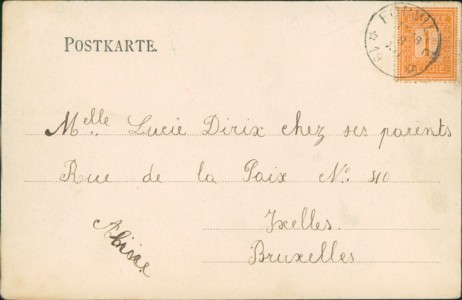 POSTKARTE.
1
Melle Lucie Dirix chez ses parents
Rue de la Paix No. 40
Ixelles.
Bruxelles